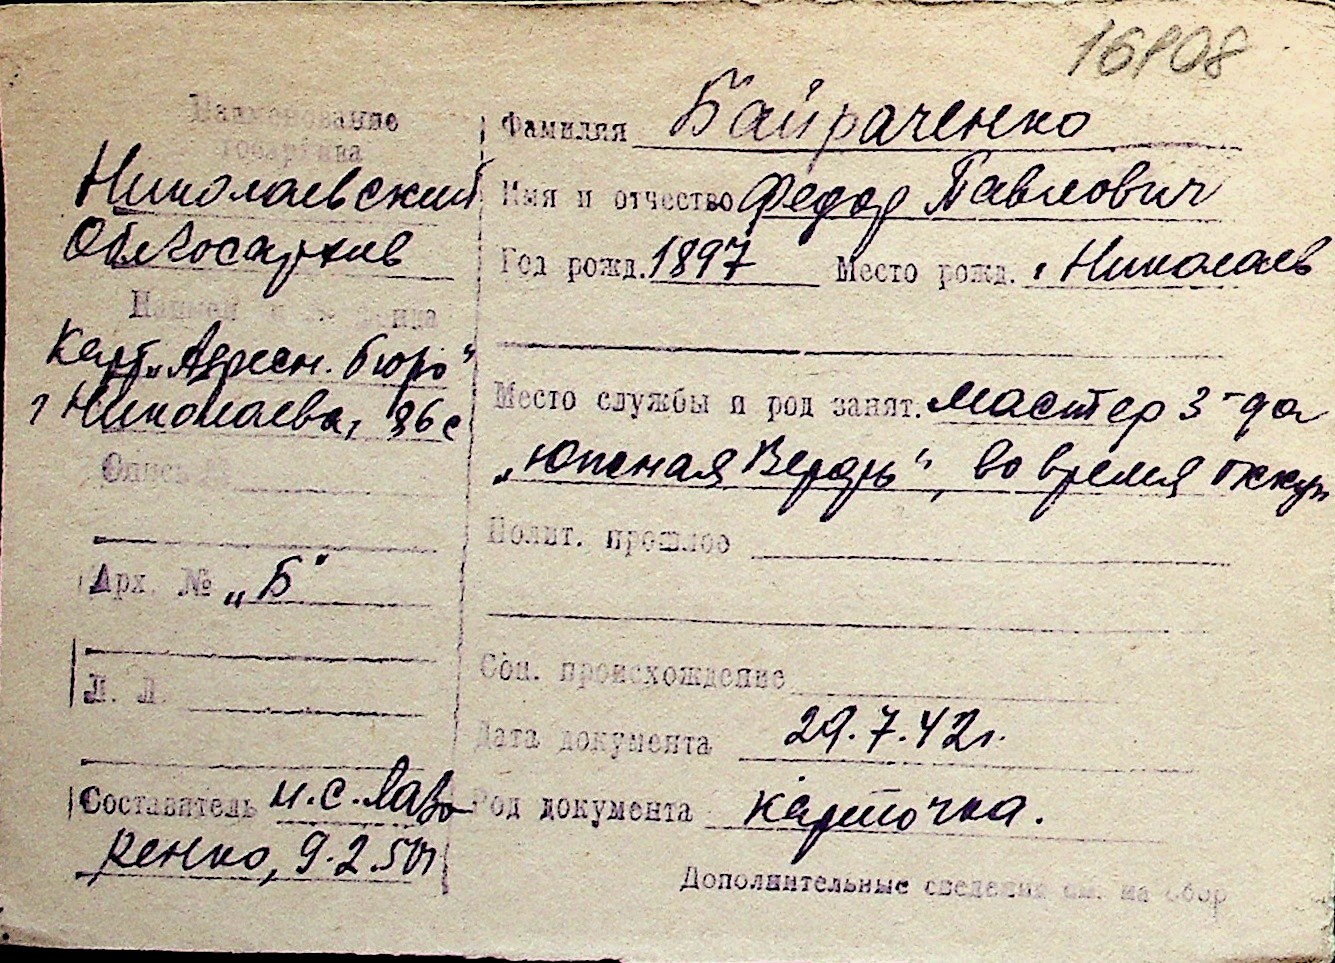 16908
Наименование
госархива
Николаевский
Облгосархив
Карт. „Адресн. бюро“
г Николаева,
Опись №
Арх. № „Б“
Л. Л.
Составитель м.с. Лаза
ренко, 9.2.50г
Фамилия Байраченко
Имя и отчество Федор Павлович
Год рожд. 1897 Место рожд. г Николаев
Место службы и род занят. мастер з-да
„Южная Верфь“, во время оккуп
Полит. прошлое
Соц. происхождение
Дата документа 29.7.42г.
Род документа карточка.
Дополнительные сведения см. на обор